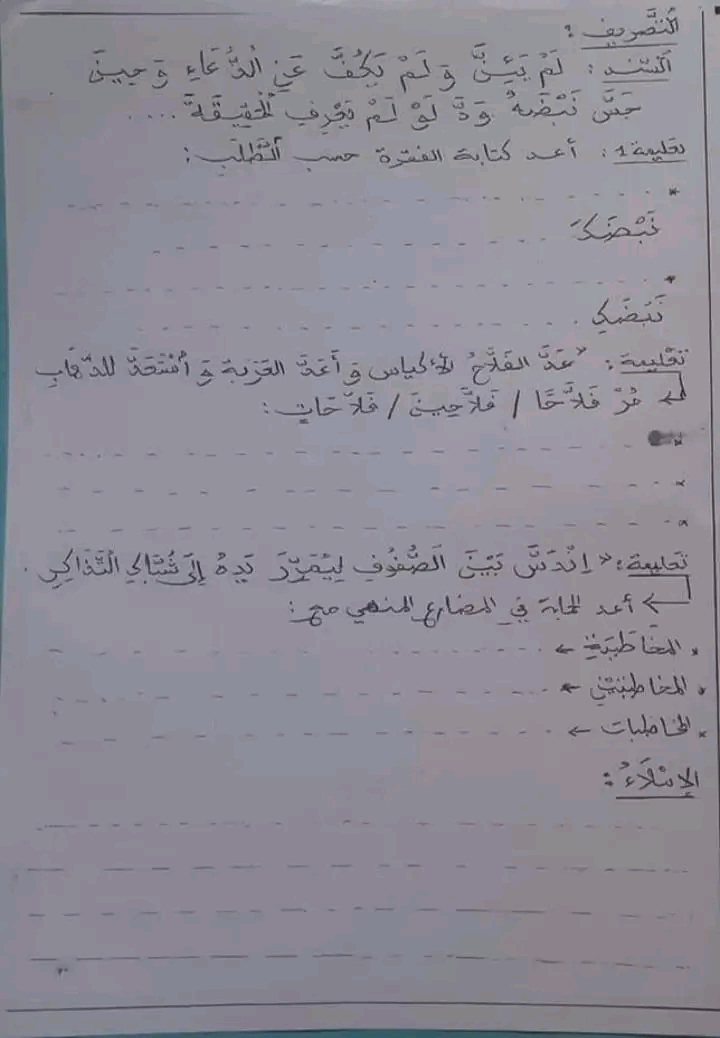 التَّصريف :
السّند : لَمْ يَئِنَّ وَ لَمْ يَكُفَّ عَنِ الدُّعَاءِ وَ حِينَ
جَسَّ نَبْضَهُ وَدَّ لَوْ لَمْ يَعْرِفِ الْحَقِيقَةَ ....
تعليمة 1 : أعد كتابة الفقرة حسب الطَّلَبِ :
*
نَبْضَكَ
*
نَبْضَكِ
تعْليمة : " عَدَّ الفَلاَّحُ الأكياس وَ أَعَدَّ العَرَبة وَ اسْتَعَدَّ للذّهَابِ
مُرْ فَلاَّحًا / فَلاَّحِينَ / فَلاَّحَاتٍ :
*
*
*
تَعليمة : " اِنْدَسَّ بَيْنَ الصُّفُوفِ لِيُمَرِّرَ يَدِهُ إِلَى شُبَّاكِ التَّذَاكِرِ .
أعد الجملة في المضارع المنفي مع :
* المخَاطَبَةِ ←
* المخاطبتيْنِ ←
* المخاطبات ←
الإمْلاَءُ :